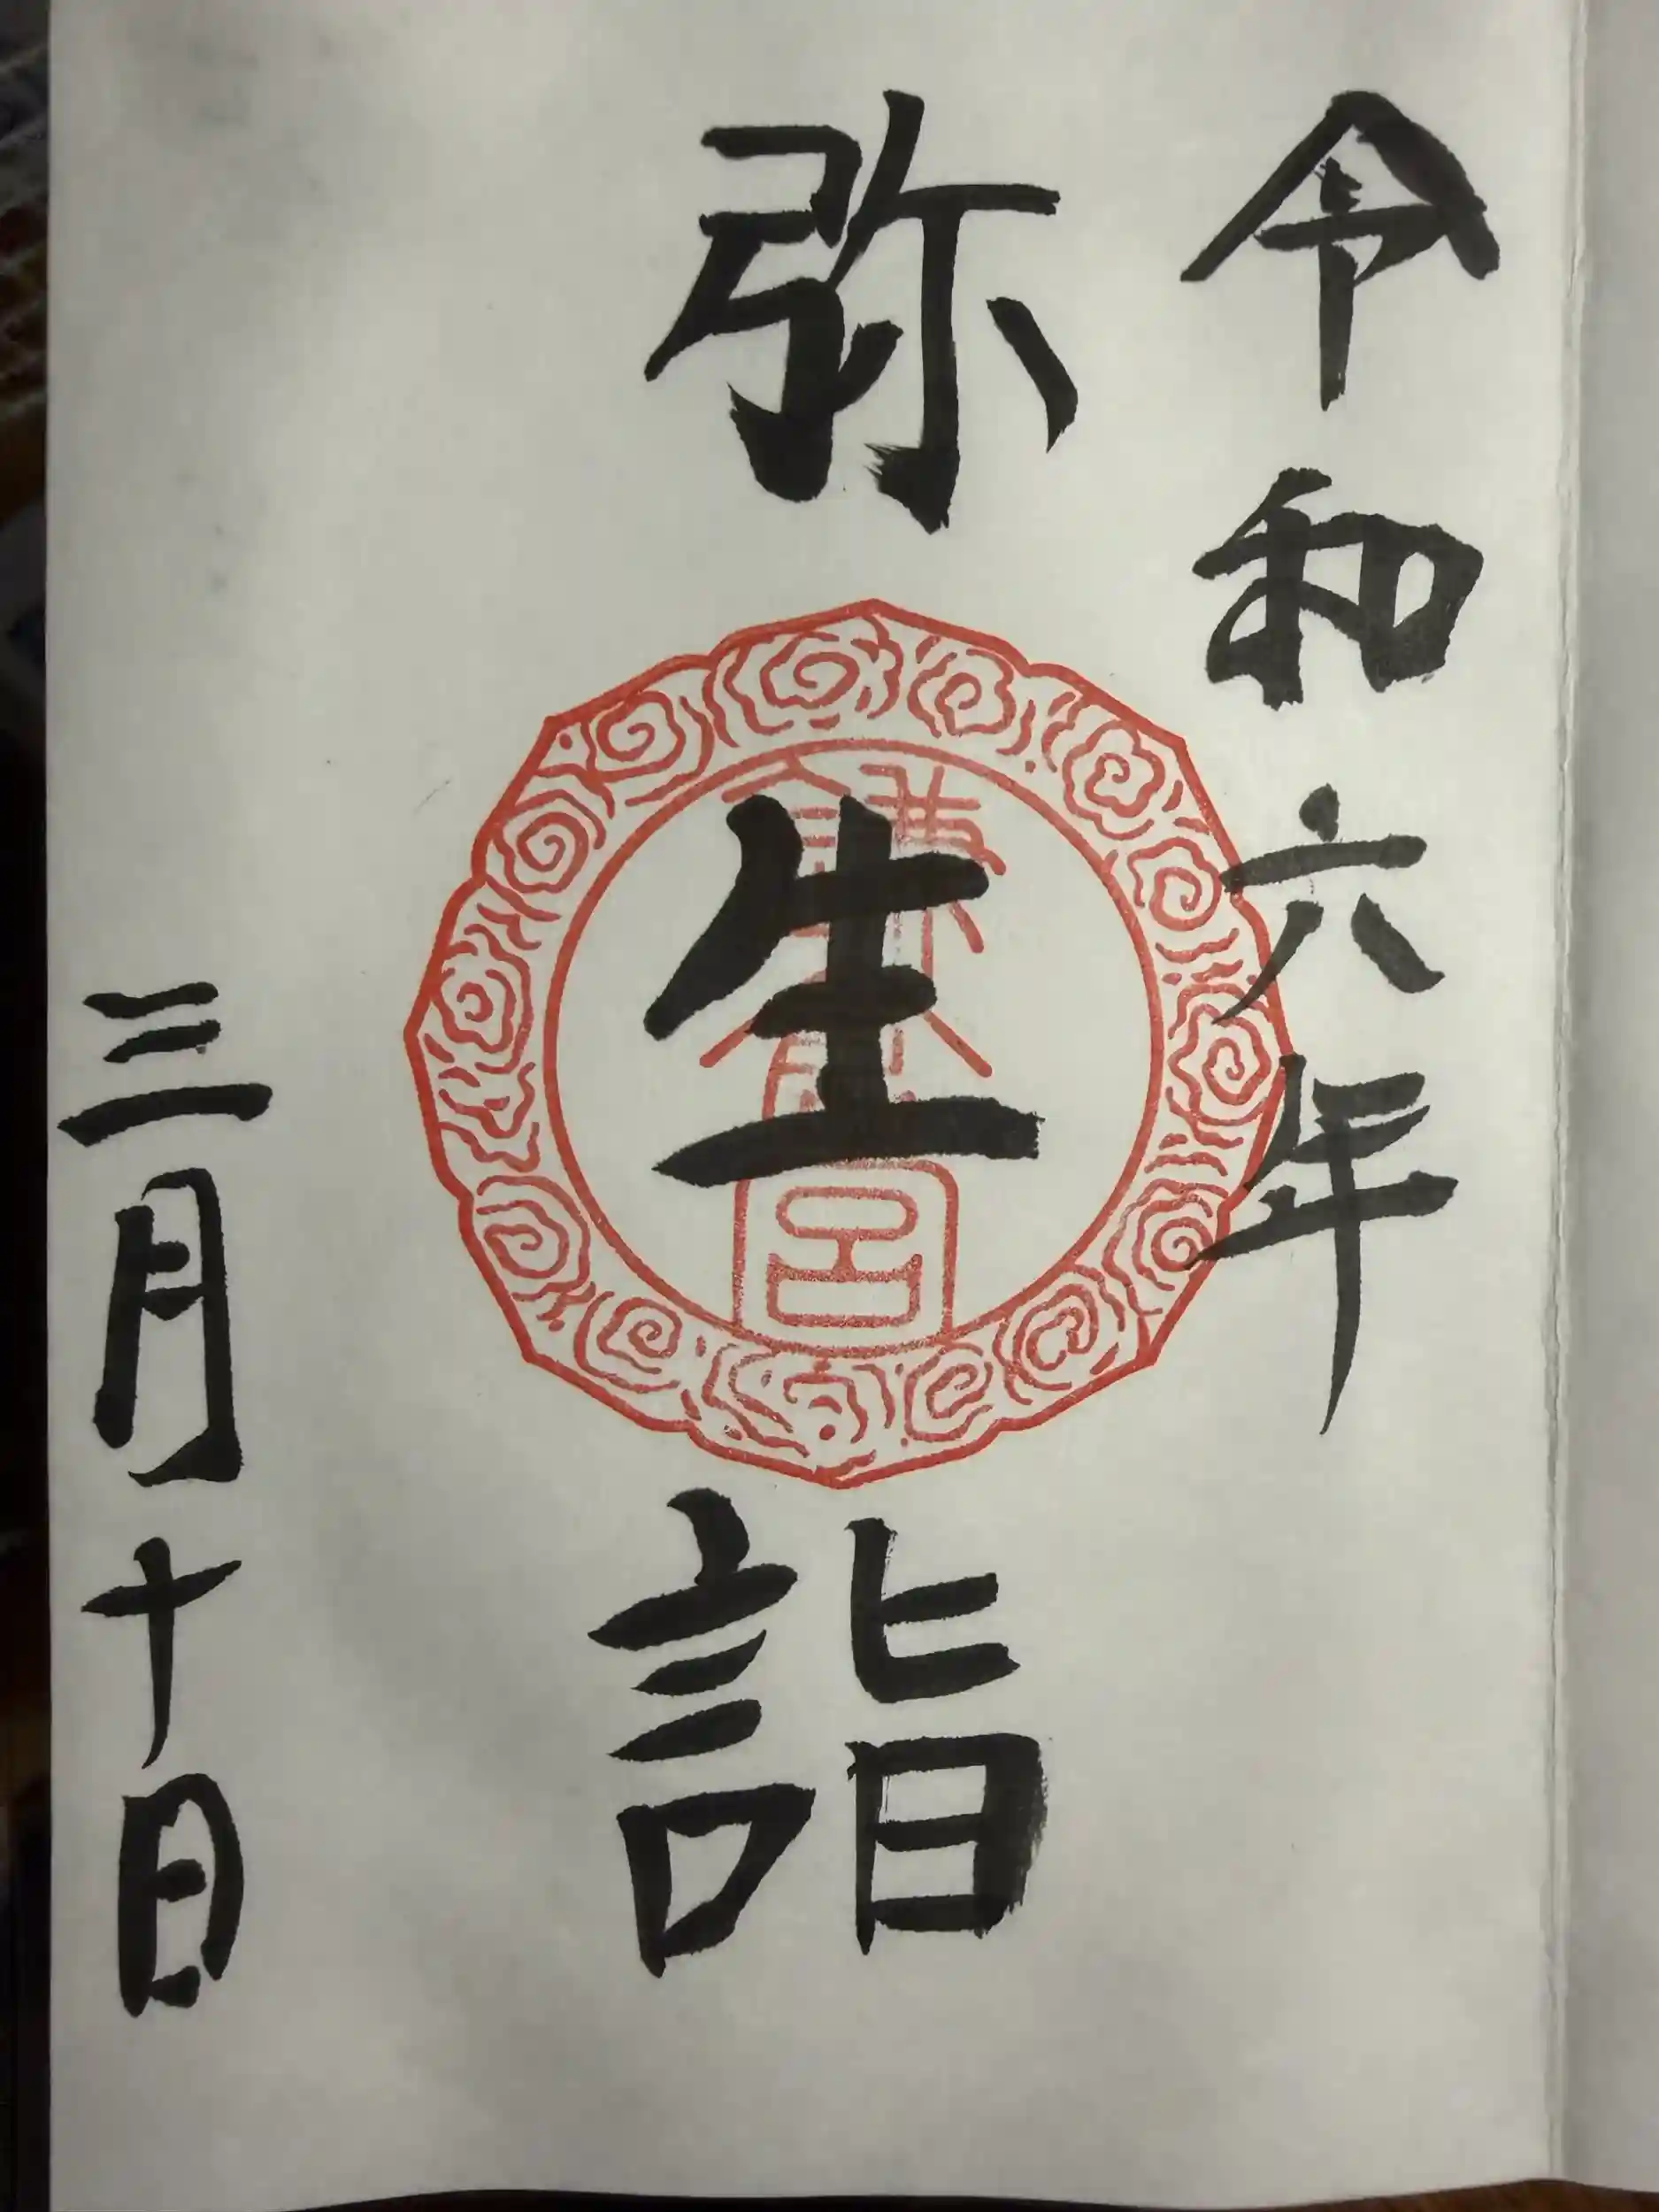 令和六年
弥生詣
三月十日